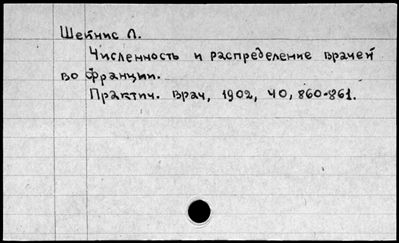 Шейнис Л.
Численность и распределение врачей
во Франции.
Практич. врач, 1902, 40, 860-861.